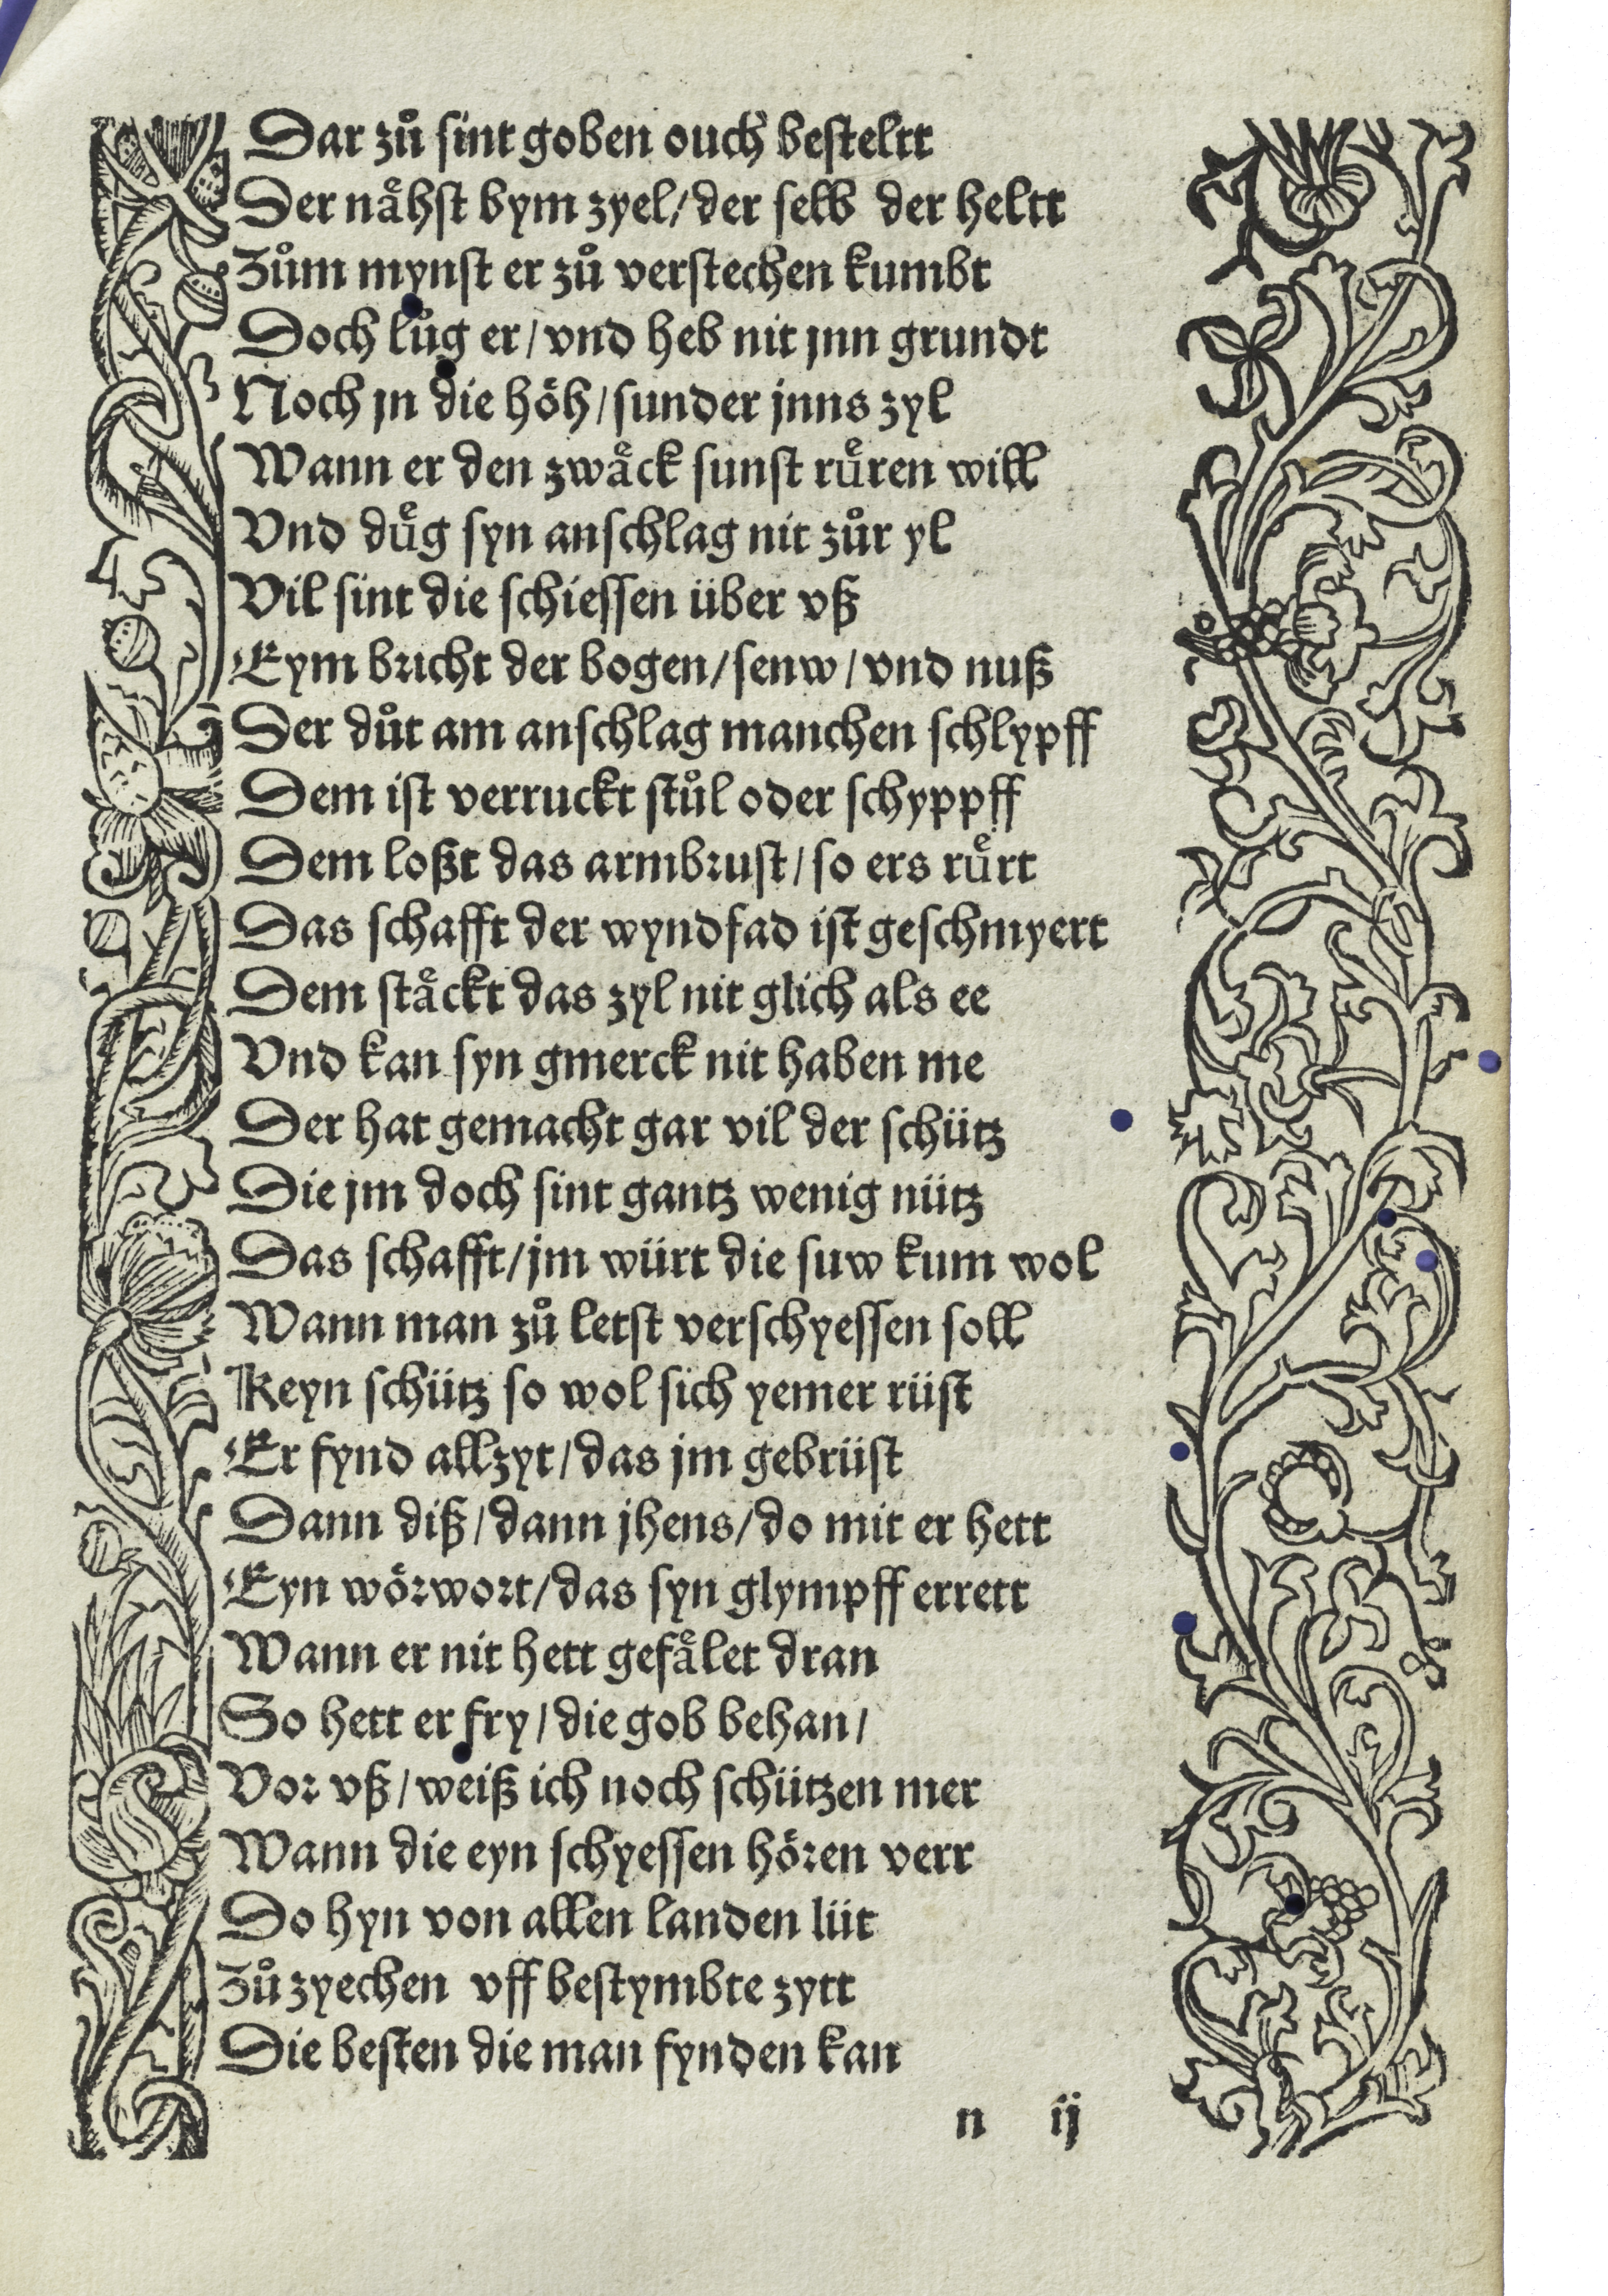 Dar zů sint goben ouch besteltt
Der nåͤhst bym zyel/der selb der heltt
Zům mynst er zů verstechen kumbt
Doch lůg er/vnd heb nit jnn grundt
Noch jn die hoͤh/sunder jnns zyl
Wann er den zwaͤck sunst ruͤren will
Vnd duͤg syn anschlag nit zůr yl
Vil sint die schiessen über vß
Eym bricht der bogen/senw/vnd nuß
Der důt am anschlag manchen schlypff
Dem ist verruckt stůl oder schyppff
Dem loßt das armbrust/so ers ruͤrt
Das schafft der wyndfad ist geschmyert
Dem staͤckt das zyl nit glich als ee
Vnd kan syn gmerck nit haben me
Der hat gemacht gar vil der schütz
Die jm doch sint gantz wenig nütz
Das schafft/jm würt die suw kum wol
Wann man zů letst verschyessen soll
Keyn schütz so wol sich yemer rüst
Er fynd allzyt/das jm gebrüst
Dann diß/dann jhens/do mit er hett
Eyn woͤrwort/das syn glympff errett
Wann er nit hett gefaͤlet dran
So hett er fry/die gob behan/
Vor vß/weiß ich noch schützen mer
Wann die eyn schyessen hoͤren verr
Do hyn von allen landen lüt
Zů zyechen vff bestymbte zytt
Die besten die man fynden kan
n ij